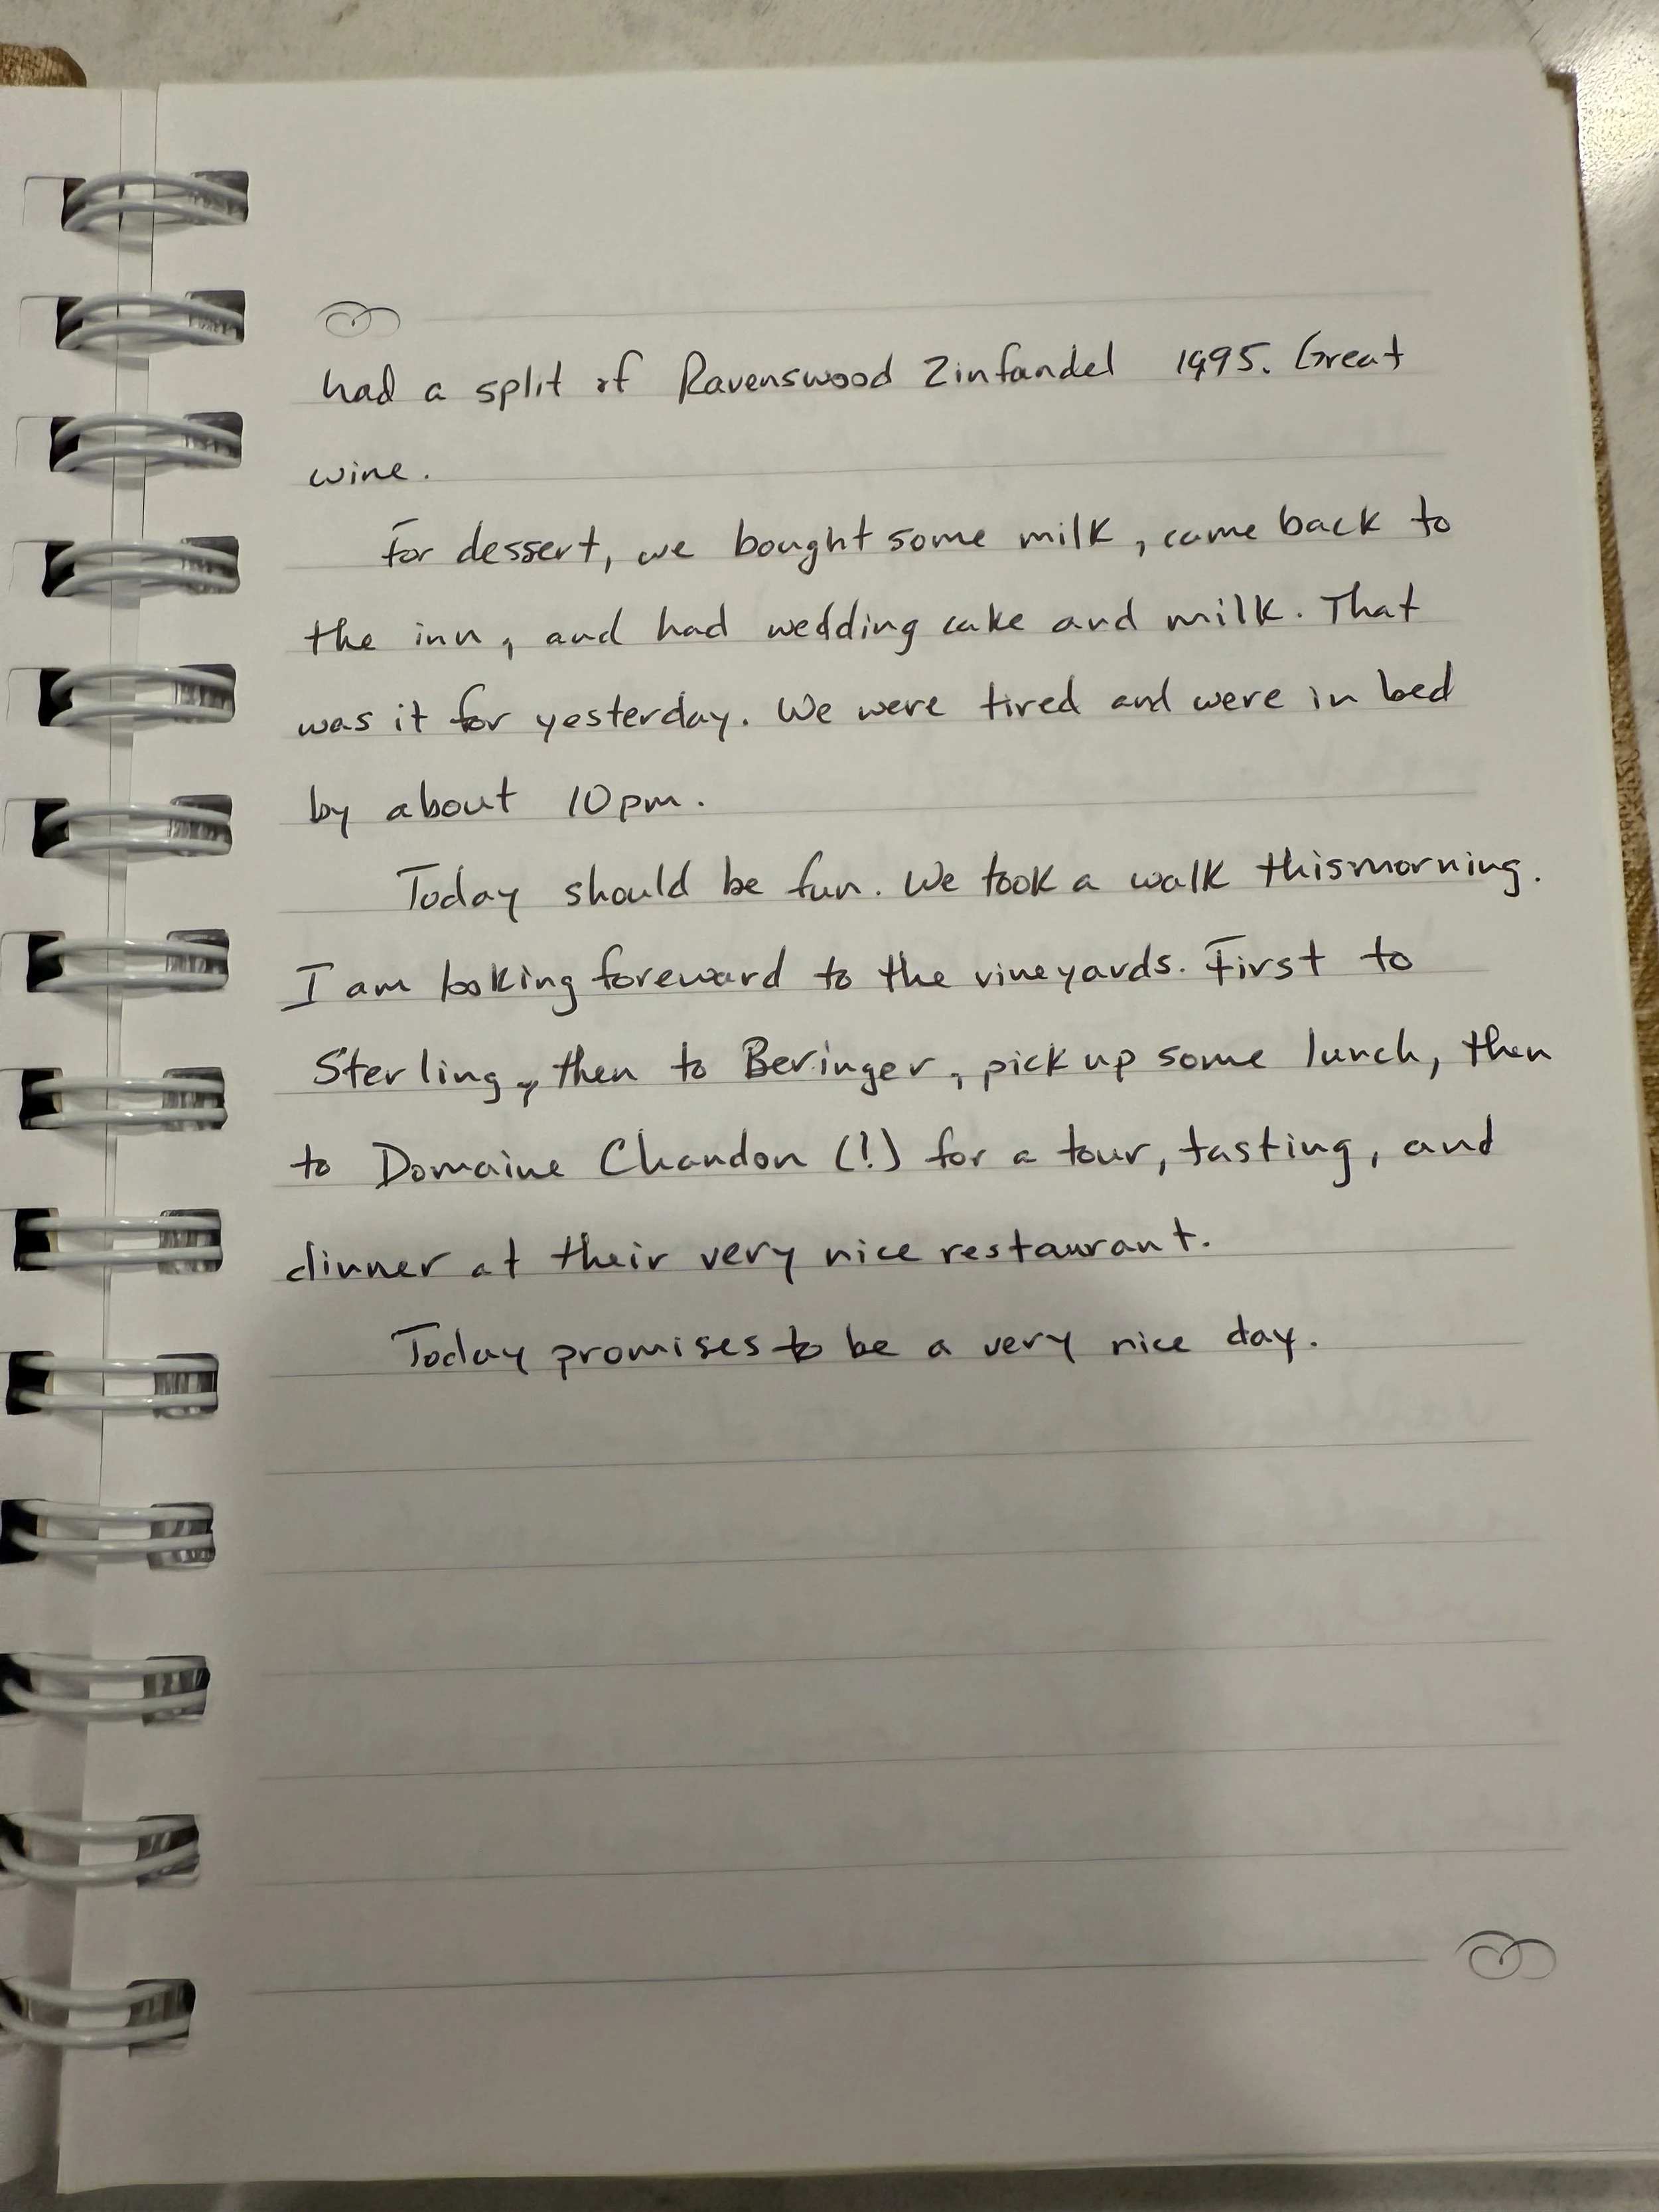 had a split of Ravenswood Zinfandel 1995. Great
wine.
For dessert, we bought some milk, came back to
the inn, and had wedding cake and milk. That
was it for yesterday. We were tired and were in bed
by about 10pm.
Today should be fun. We took a walk this morning.
I am looking foreward to the vineyards. First to
Sterling, then to Beringer, pick up some lunch, then
to Domaine Chandon (!) for a tour, tasting, and
dinner at their very nice restaurant.
Today promises to be a very nice day.